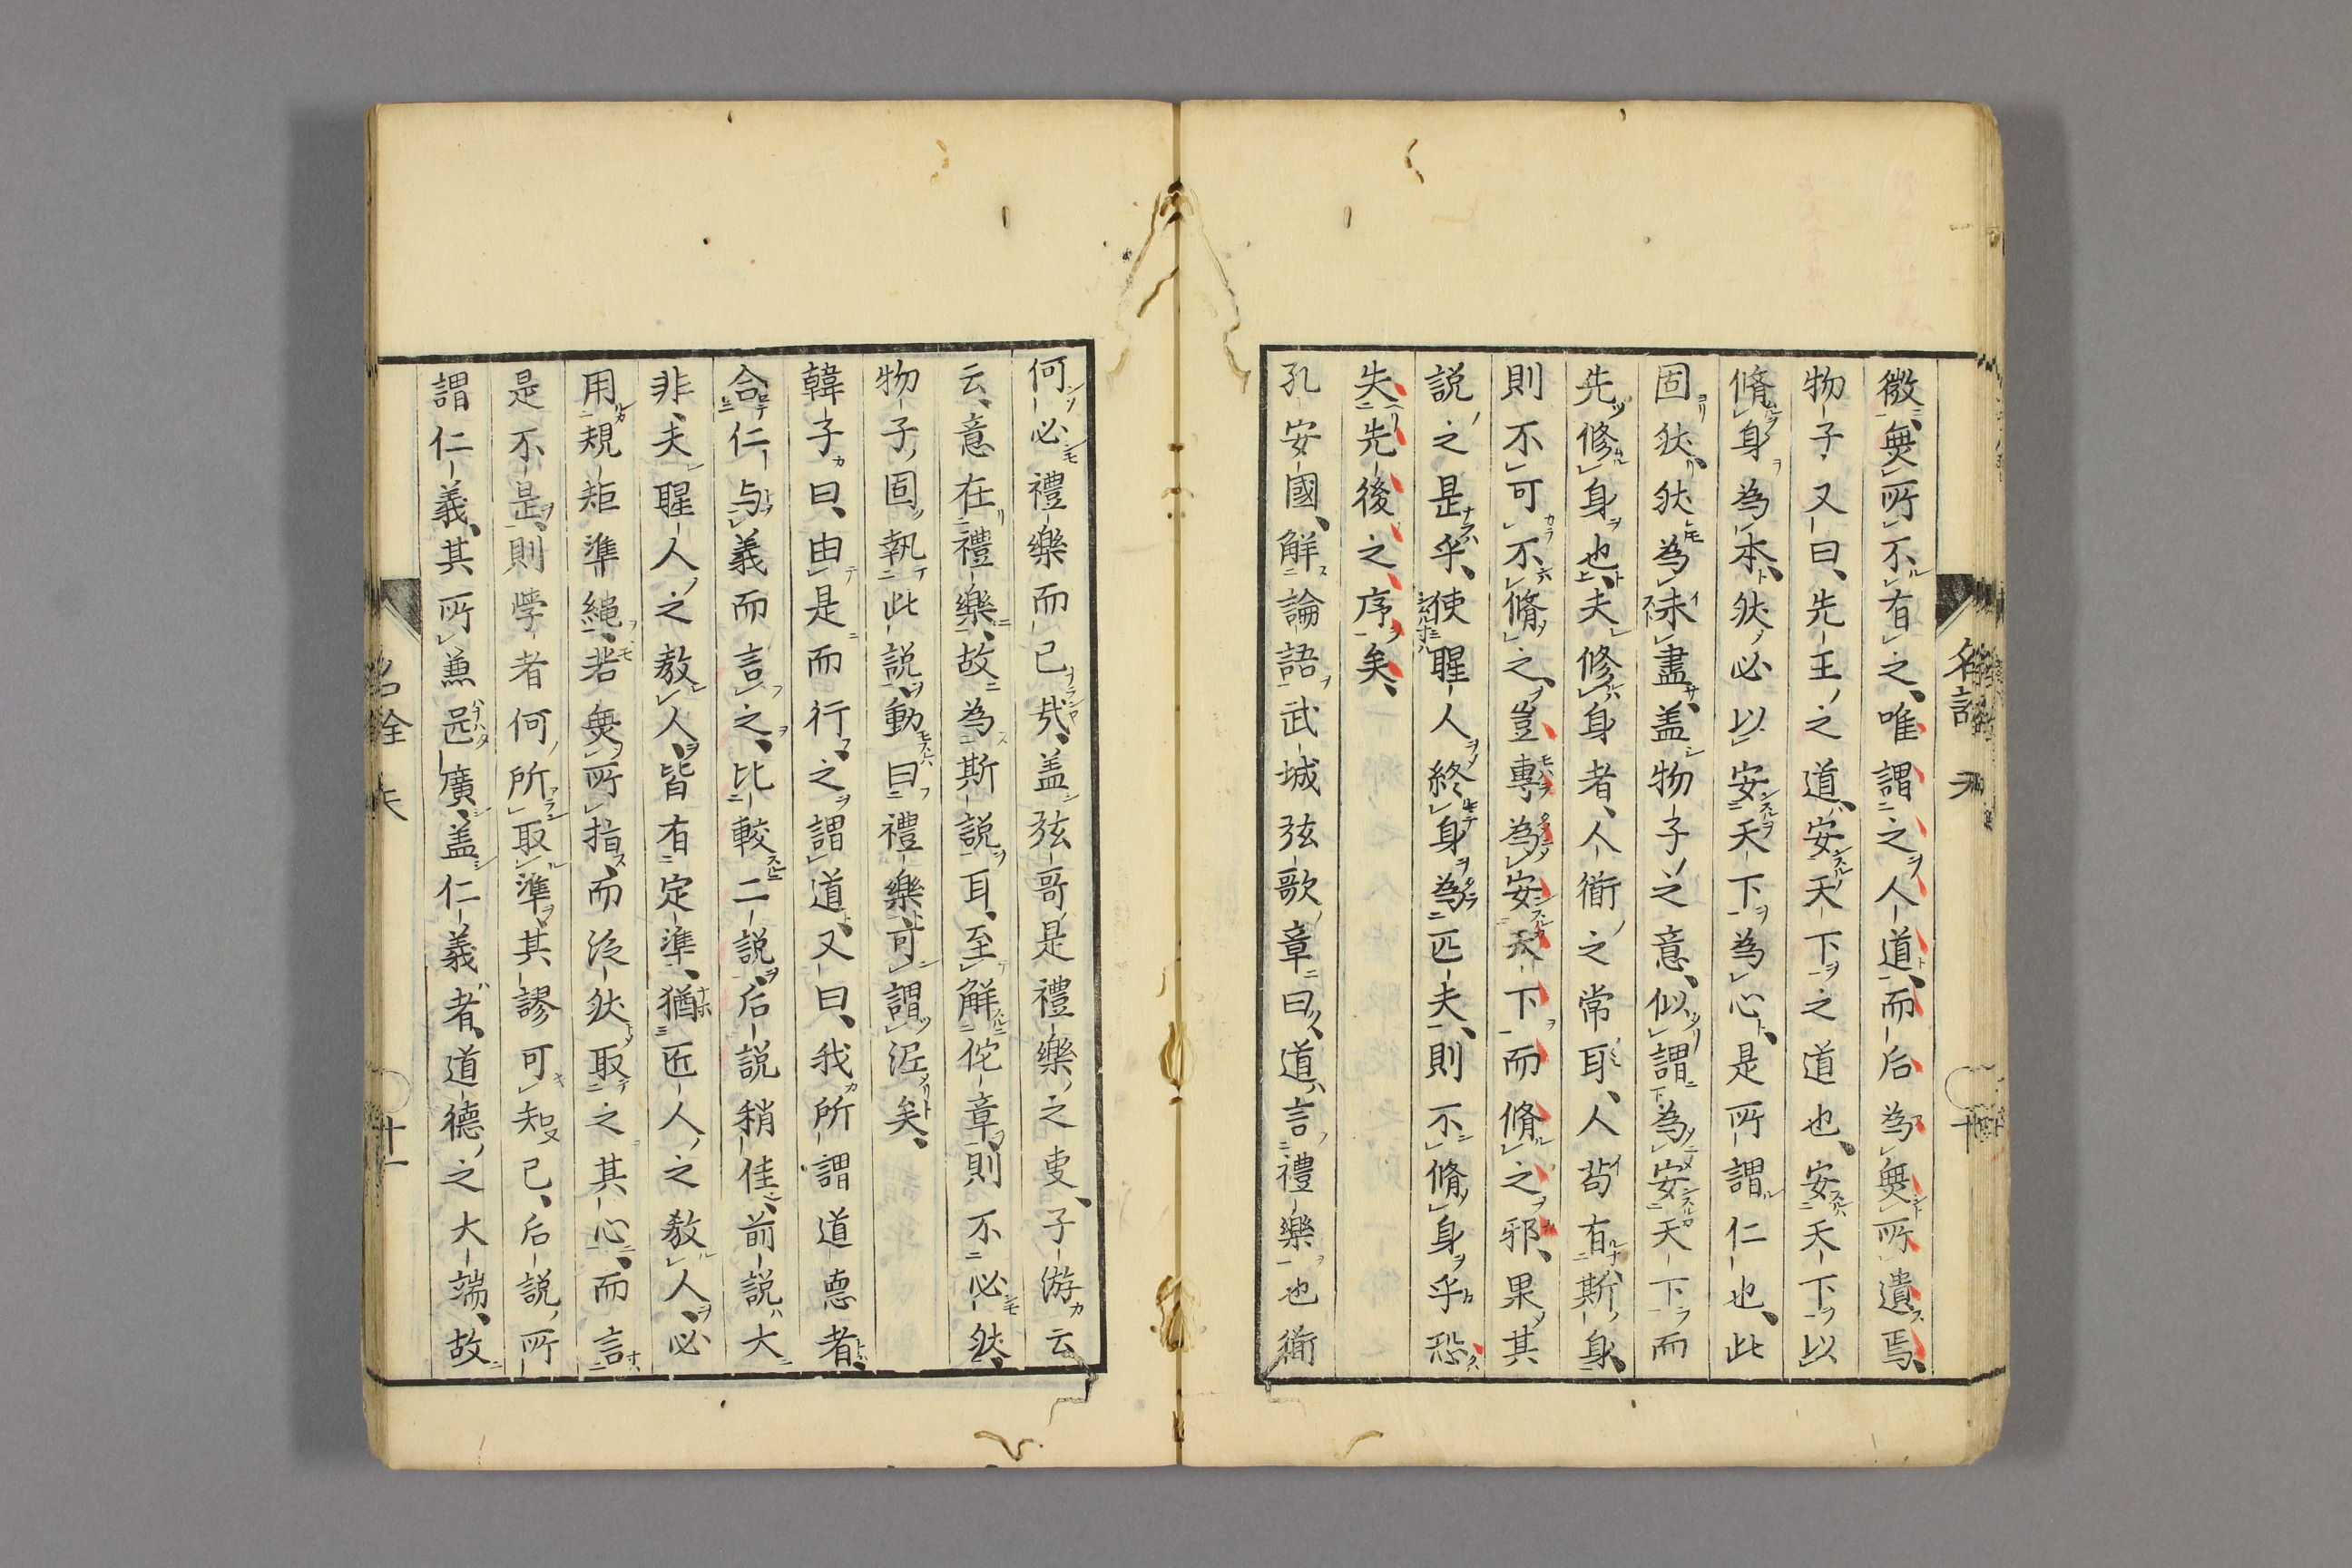 微、無所不有之、唯謂之人道、而后為無所遺焉、
物子又曰、先王之道、安天下之道也、安天下以
脩身為本、然必以安天下為心、是所謂仁也、此
固然、然為未盡、盖物子之意、似謂為安天下而
先修身也、夫修身者、人衟之常耳、人苟有斯身、
則不可不脩之、豈專為安天下而脩之邪、果其
説之是乎、使聖人終身為匹夫、則不脩身乎、恐
失先後之序矣、
孔安國、解論語武城弦歌章曰、道、言禮樂也衟
何必禮樂而已哉、盖弦哥是禮樂之叓、子游云
云、意在禮樂、故為斯説耳、至解佗章、則不必然、
物子固執此説、動曰禮樂、可謂泥矣、
韓子曰、由是而行、之謂道、又曰、我所謂道悳者、
合仁与義而言之、比較二説、后説稍佳、前説大
非、夫聖人之敎人、皆有定準、猶匠人之敎人、必
用規矩準繩、若無所指、而泛然取之其心、而言
是不是、則學者何所取準、其謬可知已、后説所
謂仁義、其所兼
廣、盖仁義者、道德之大端、故
名詮
十
名詮
十一